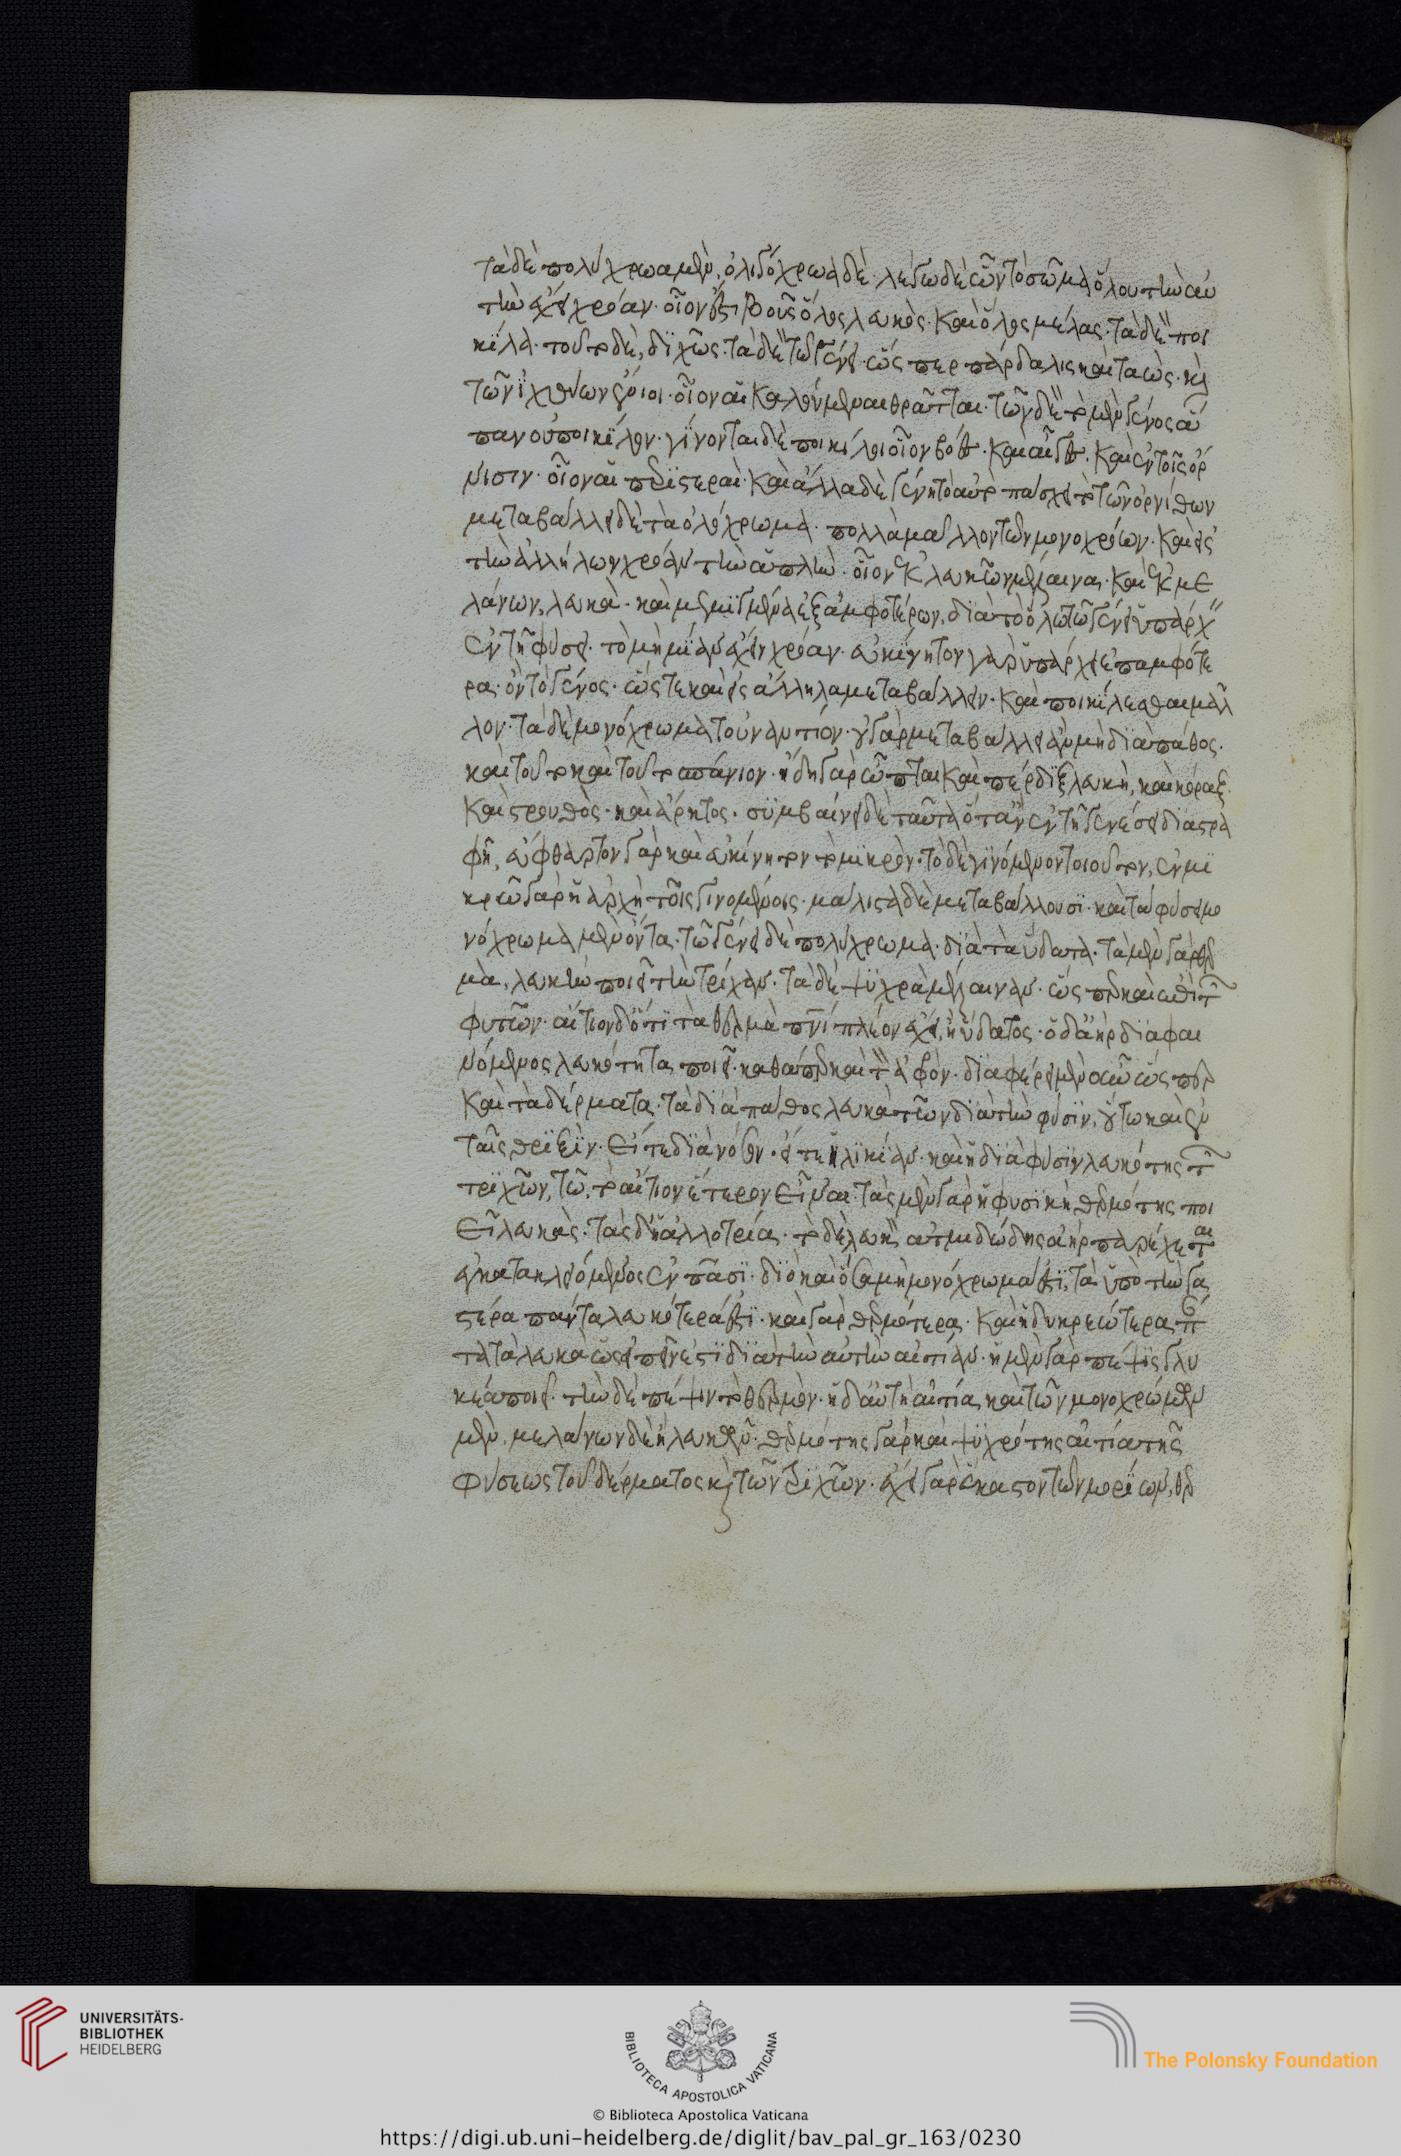 τὰ δὲ πολύχρωα μὲν, ὁλόχρωα δὲ. λέγω δὲ ὧν τὸ σῶμα ὅλου τὴν αὐ
τὴν ἔχει χρόαν. οἷον ἐστὶ βοῦς ὅλος λευκὸς. καὶ ὅλος μέλας. τὰ δὲ ποι
κίλα. τοῦτο δὲ, διχῶς. τὰ δὲ τῷ γένει. ὥσπερ πάρδαλις καὶ ταὼς. καὶ
τῶν ἰχθύων ἔνιοι. οἷον αἱ καλούμεναι θρᾶτται. τῶν δὲ τὸ μὲν γένος ἅ
παν οὐ ποικίλον. γίνονται δὲ ποικίλοι οἷον βόες. καὶ αἶγες. καὶ ἐν τοῖς ὄρ
νισιν. οἷον αἱ περιστεραὶ. καὶ ἄλλα δὲ γένη τὸ αὐτὸ πάσχει τὸ τῶν ὀρνίθων
μεταβάλλει δὲ τὰ ὁλόχρωμα. πολλὰ μᾶλλον τῶν μονοχρόων. καὶ εἰς
τὴν ἀλλήλων χρόαν τὴν ἁπλὴν. οἷον ἐκ λευκῶν μέλαινας. καὶ ἐκ με
λάνων, λευκὰ. καὶ μεμιγμένα ἐξ ἀμφοτέρων, διὰ τὸ ὅλω τῶ γένει ὑπάρχειν
ἐν τῆ φύσει. τὸ μὴ μίαν ἔχειν χρόαν. εὐκίνητον γὰρ ὑπάρχει ἐπαμφότε
ρα. ὂν τὸ γένος. ὥστε καὶ εἰς ἄλληλα μεταβάλλειν. καὶ ποικίλεσθαι μᾶλ
λον. τὰ δὲ μονόχρωμα τοὐναντίον. οὐ γὰρ μεταβάλλει ἂν μὴ διὰ πάθος.
καὶ τοῦτο καὶ τοῦτο σπάνιον. ἤδη γὰρ ὦπται καὶ πέρδιξ λευκὴ, καὶ κόραξ.
καὶ στρουθὸς. καὶ ἄρκτος. συμβαίνει δὲ ταῦτα ὅταν ἐν τῆ γενέσει διαστρα
φῆ, εὔφθαρτον γὰρ καὶ εὐκίνητον τὸ μικρὸν. τὸ δὲ γινόμενον τοιοῦτον, ἐν μι
κρῶ γὰρ ἡ ἀρχὴ τοῖς γινομένοις. μάλιστα δὲ μεταβάλλουσι. καὶ τὰ φύσει μο
νόχρωμα μὲν ὄντα. τῶ γένει δὲ πολύχρωμα. διὰ τὰ ὕδατα. τὰ μὲν γὰρ θερ
μὰ, λευκὴν ποιεῖ τὴν τρίχαν. τὰ δὲ ψυχρὰ μέλαιναν. ὥσπερ καὶ ἐπὶ τῶν
φυτῶν. αἴτιον δ' ὅτι τὰ θερμὰ πνεύματος πλέον ἔχει, ἢ ὕδατος. ὁ δ' ἀὴρ διαφαι
νόμενος λευκότητα ποιεῖ. καθάπερ καὶ τὸν ἀφρὸν. διαφέρει μὲν οὖν ὥσπερ
καὶ τὰ δέρματα. τὰ διὰ πάθος λευκὰ τῶν διὰ τὴν φύσιν, οὕτω καὶ ἐν
ταῖς θριξὶν. εἴτε διὰ νόσον. εἴτε ἡλικίαν. καὶ ἡ διὰ φύσιν λευκότης τῶν
τριχῶν, τῶ, τὸ αἴτιον ἕτερον εἶναι. τὰς μὲν γὰρ ἡ φυσικὴ θερμότης ποι
εῖ λευκὰς. τὰς δ' ἡ ἀλλοτρία. τὸ δὲ λευκὸν ἀτμιδώδης ἀὴρ παρέχεται
ἐγκατακλειόμενος ἐν πᾶσι. διὸ καὶ ὅσα μὴ μονόχρωμά ἐστι, τὰ ὑπὸ τὴν γα
στέρα πάντα λευκότερά ἐστι. καὶ γὰρ θερμότερα. καὶ ἡδυκρεώτερα πάν
τα τὰ λευκὰ ὡς εἰπεῖν ἐστὶ διὰ τὴν αὐτὴν αἰτίαν. ἡ μὲν γὰρ πέψις γλυ
κέα ποιεῖ. τὴν δὲ πέψιν τὸ θερμὸν. ἡ δ' αὐτὴ αἰτία καὶ τῶν μονοχρώμων
μὲν, μελάνων δὲ ἢ λευκῶν. θερμότης γὰρ καὶ ψυχρότης αἰτία τῆς
φύσεως τοῦ δέρματος καὶ τῶν τριχῶν. ἔχει γὰρ ἕκαστον τῶν μορίων, θερ
UNIVERSITÄTS-
BIBLIOTHEK
HEIDELBERG
BIBLIOTECA APOSTOLICA VATICANA
The Polonsky Foundation
© Biblioteca Apostolica Vaticana
https://digi.ub.uni-heidelberg.de/diglit/bav_pal_gr_163/0230